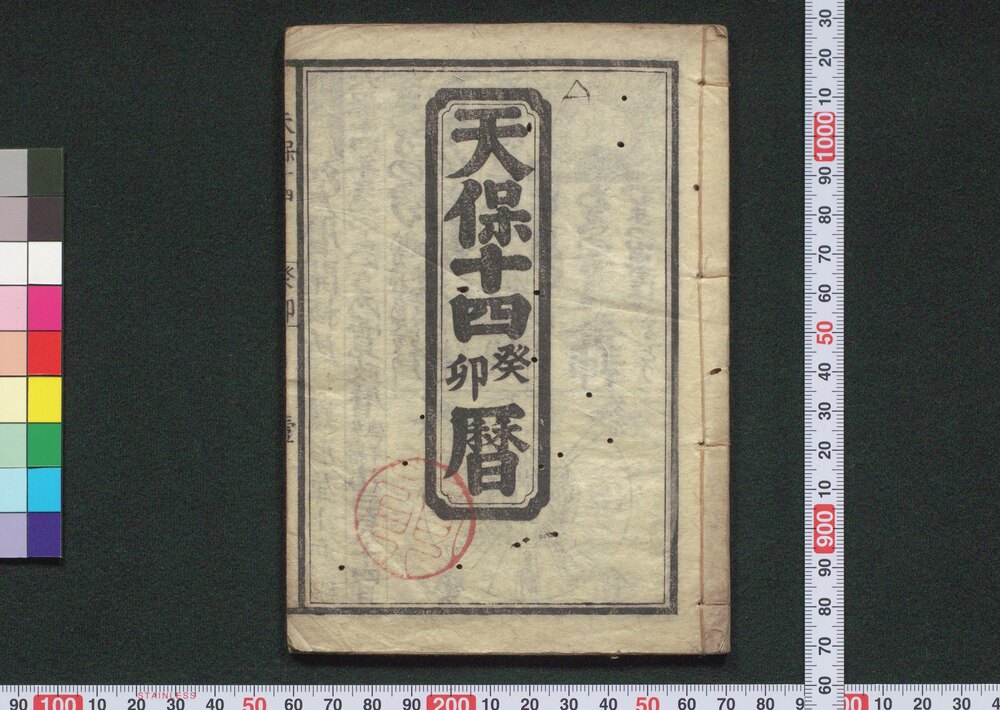 天保十四癸卯暦
天保十四 癸卯
30
20
10
1000
90
80
70
60
50
40
30
20
10
900
90
80
70
60
STAINLESS
90 100 10 20 30 40 50 60 70 80 90 200 10 20 30 40 50 60 70 80 90 00 10 20 30 4